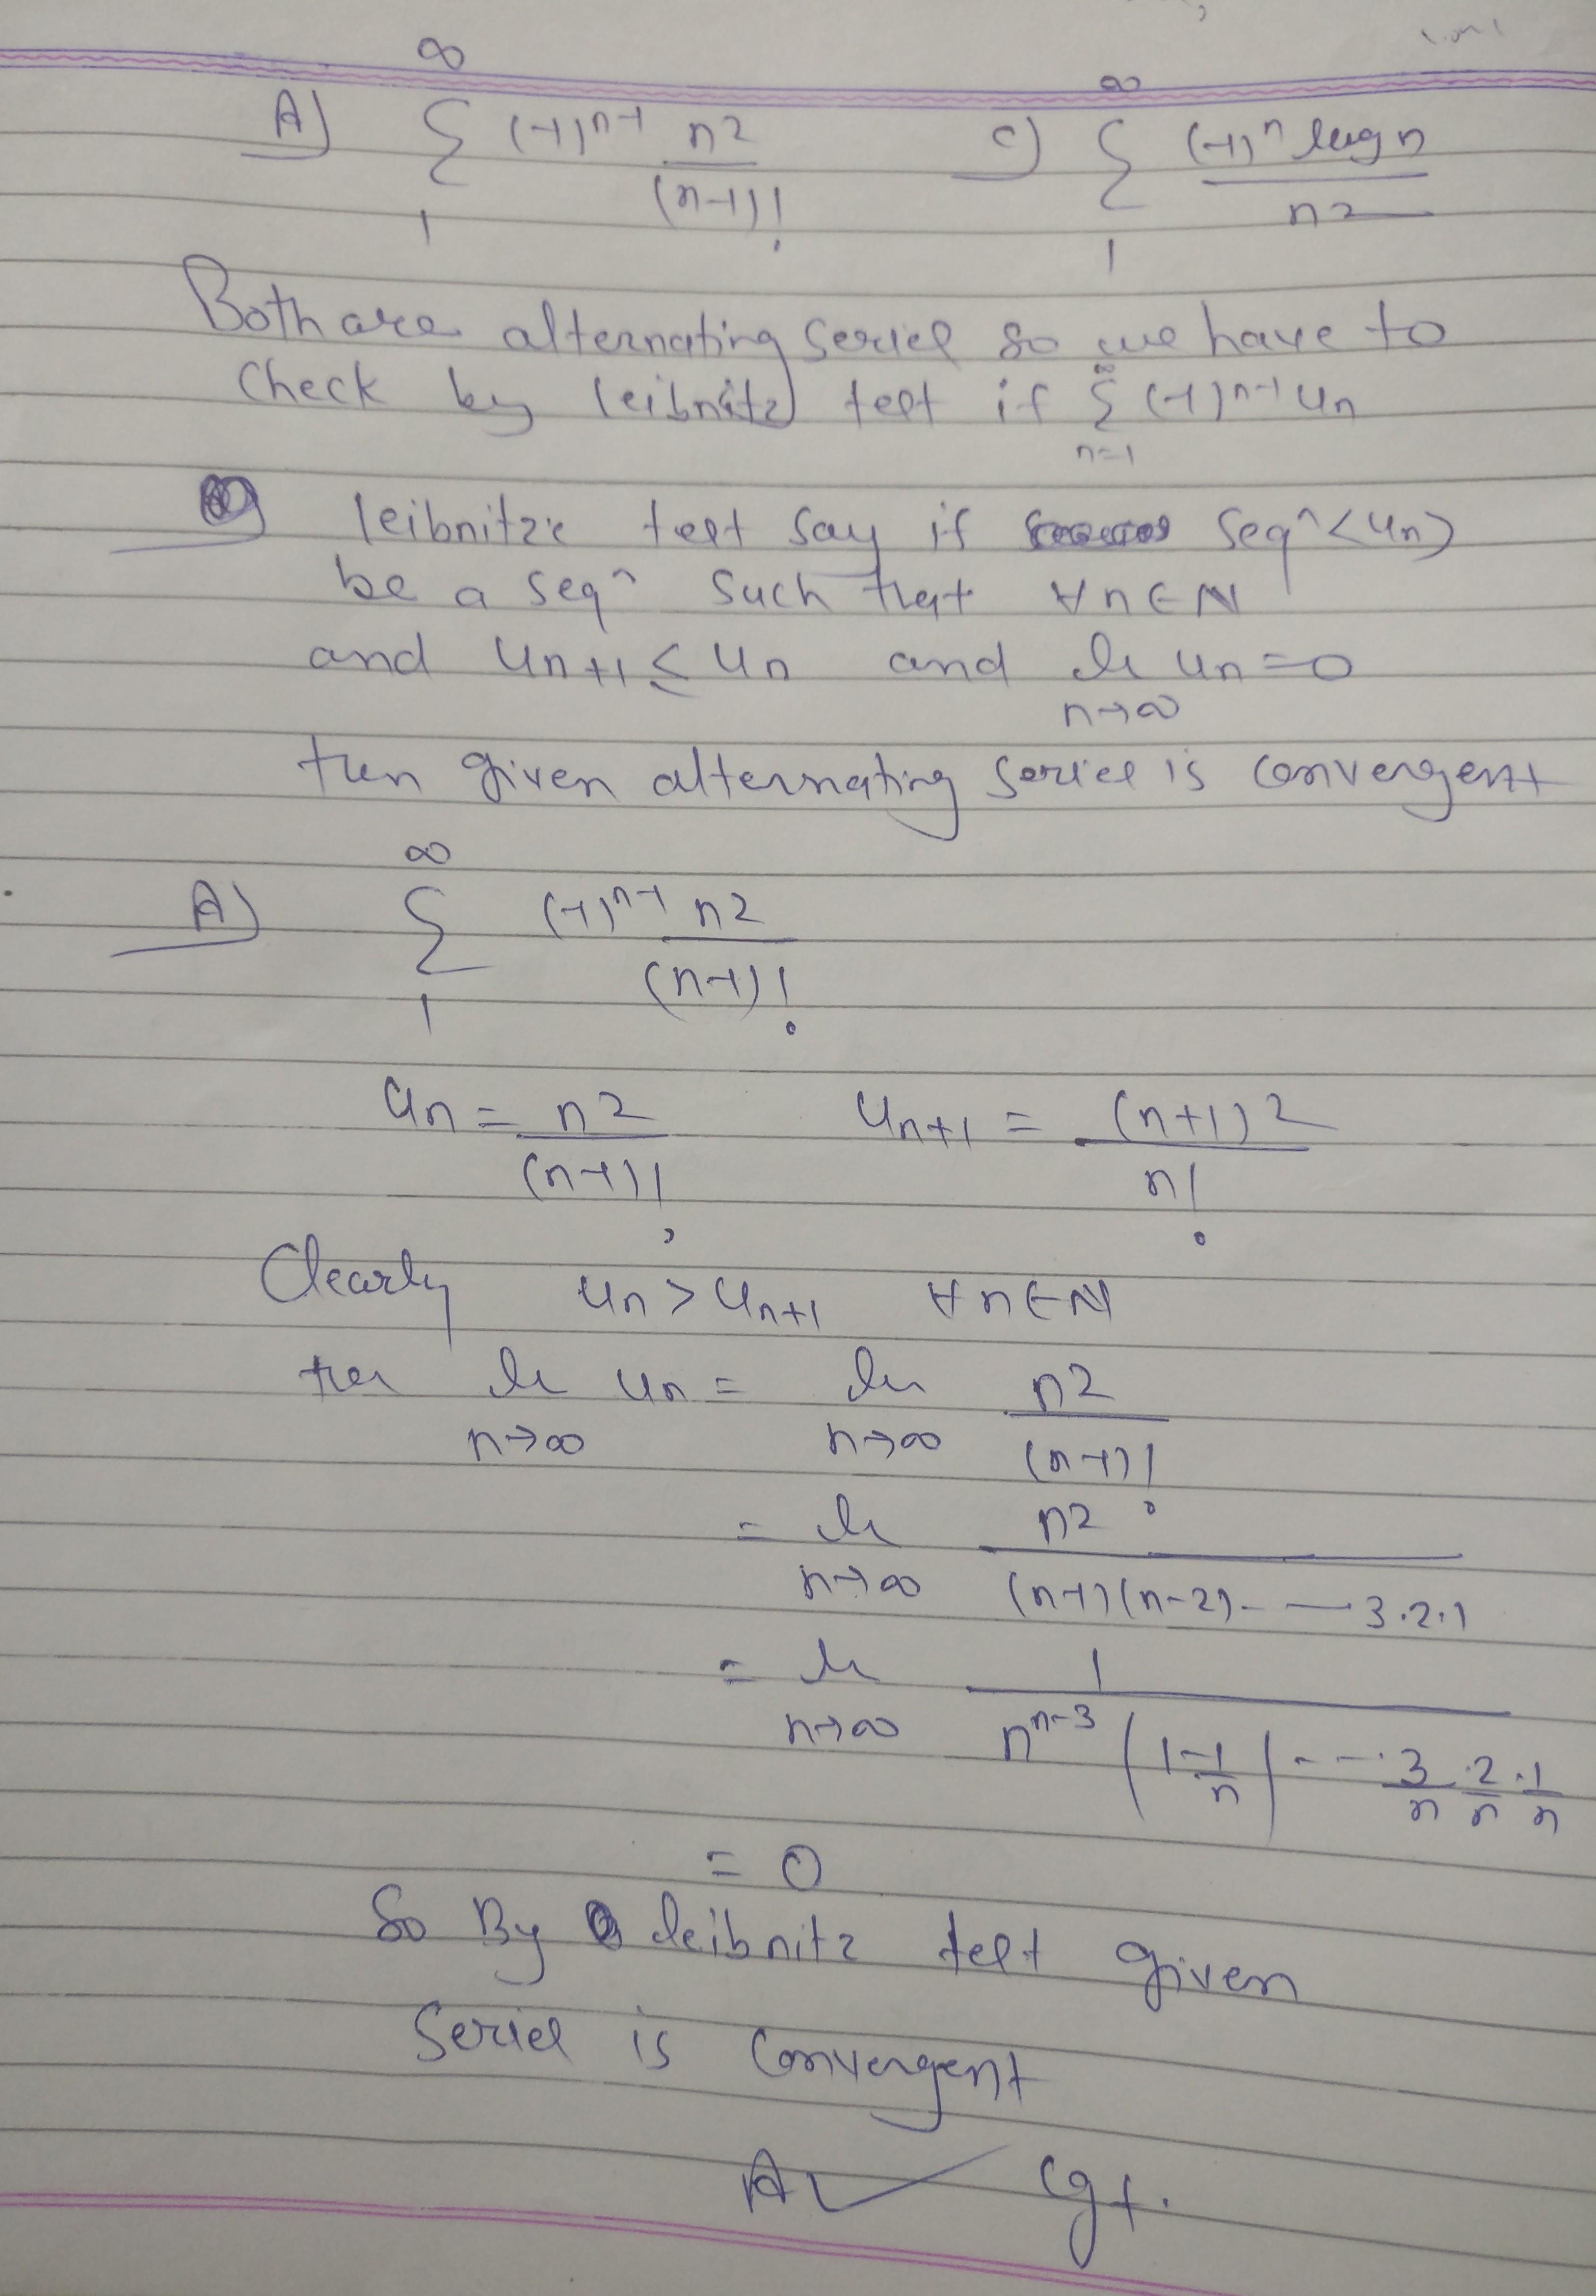 A) ∞ Σ 1 (-1)^{n-1} n2/(n-1)! c) ∞ Σ 1 (-1)^n log n/n2
Both are alternating series so we have to
Check by leibnitz test if ∞ Σ n=1 (-1)^{n-1} u_n
leibnitz's test say if seq^n <u_n>
be a seq^n such that ∀n∈N
and u_{n+1} ≤ u_n and lim n→∞ u_n=0
then given alternating series is convergent
A) ∞ Σ 1 (-1)^{n-1} n2/(n-1)!
u_n = n2/(n-1)! u_{n+1} = (n+1)2/n!
Clearly u_n > u_{n+1} ∀n∈N
then lim n→∞ u_n = lim n→∞ n2/(n-1)!
= lim n→∞ n2/(n-1)(n-2)- — 3.2.1
= lim n→∞ 1/n^{n-3} (1-1/n) - - - 3/n . 2/n . 1/n
= 0
So By leibnitz test given
Series is Convergent
A ✓ Cgt.